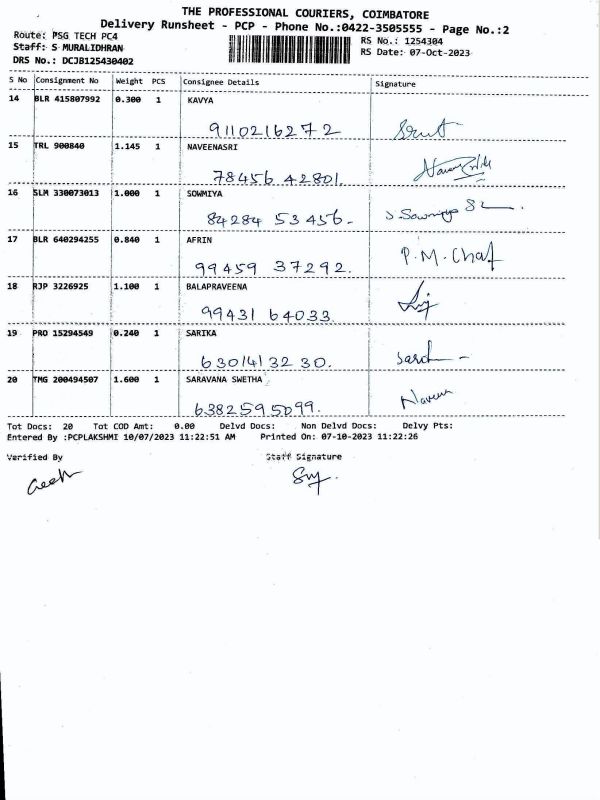 THE PROFESSIONAL COURIERS, COIMBATORE
Delivery Runsheet - PCP - Phone No.:0422-3505555 - Page No.:2
Route: PSG TECH PC4
RS No.: 1254304
Staff: S MURALIDHRAN
RS Date: 07-Oct-2023
DRS No.: DCJB125430402
S No Consignment No Weight PCS Consignee Details Signature
14 BLR 415807992 0.300 1 KAVYA
9110216272
15 TRL 900840 1.145 1 NAVEENASRI
78456 42801.
16 SLM 330073013 1.000 1 SOWMIYA
84284 53456- S. Sowmiya
17 BLR 640294255 0.840 1 AFRIN
99459 37292. P.M. Chaf
18 RJP 3226925 1.100 1 BALAPRAVEENA
99431 64033.
19 PRO 15294549 0.240 1 SARIKA
6301413230.
20 TMG 200494507 1.600 1 SARAVANA SWETHA
6382595099. Naveen
Tot Docs: 20 Tot COD Amt: 0.00 Delvd Docs: Non Delvd Docs: Delvy Pts:
Entered By :PCPLAKSHMI 10/07/2023 11:22:51 AM Printed On: 07-10-2023 11:22:26
Verified By Staff Signature